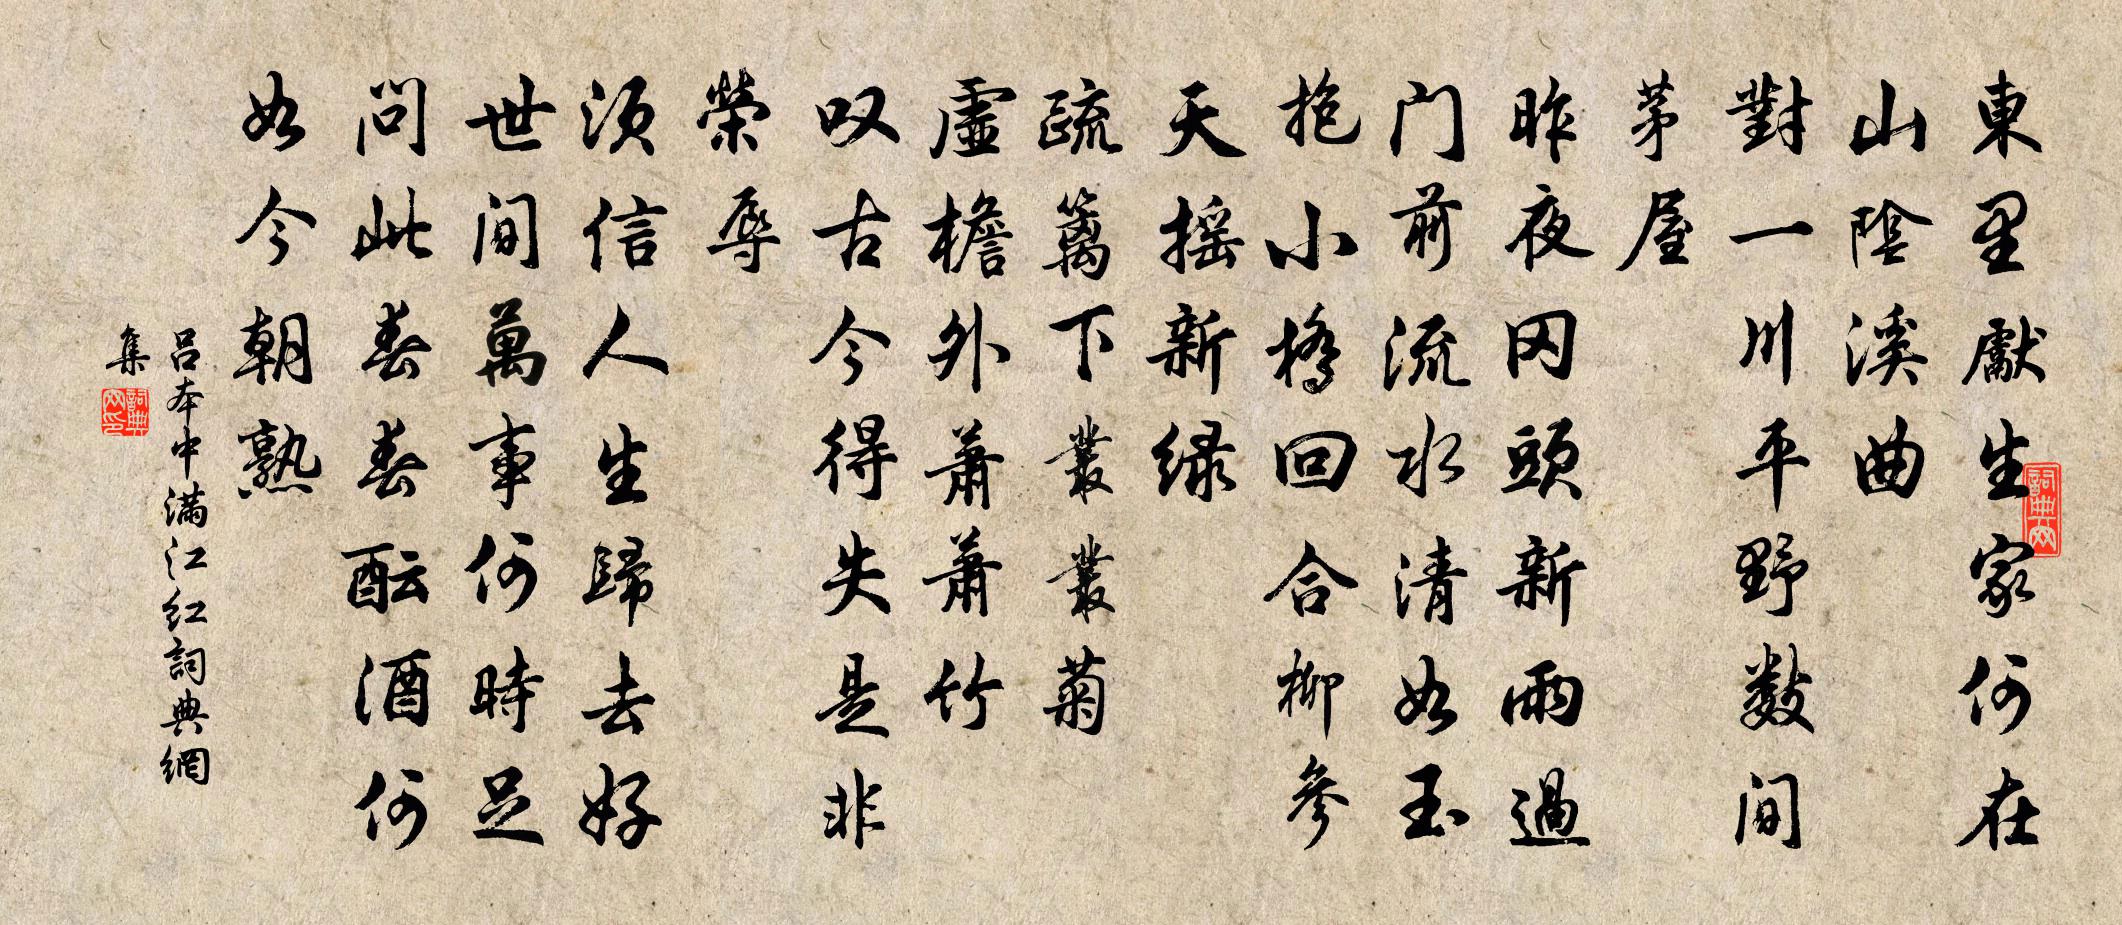 東里獻生家何在
山陰溪曲
對一川平野數间
茅屋
昨夜冈頭新雨過
门前流水清如玉
抱小橋回合柳參
天摇新绿
疏篱下叢叢菊
虛檐外蕭蕭竹
叹古今得失是非
榮辱
须信人生歸去好
世间萬事何時足
问此春春酝酒何
如今朝熟
吕本中满江红詞典網
集
詞典网
詞典网印